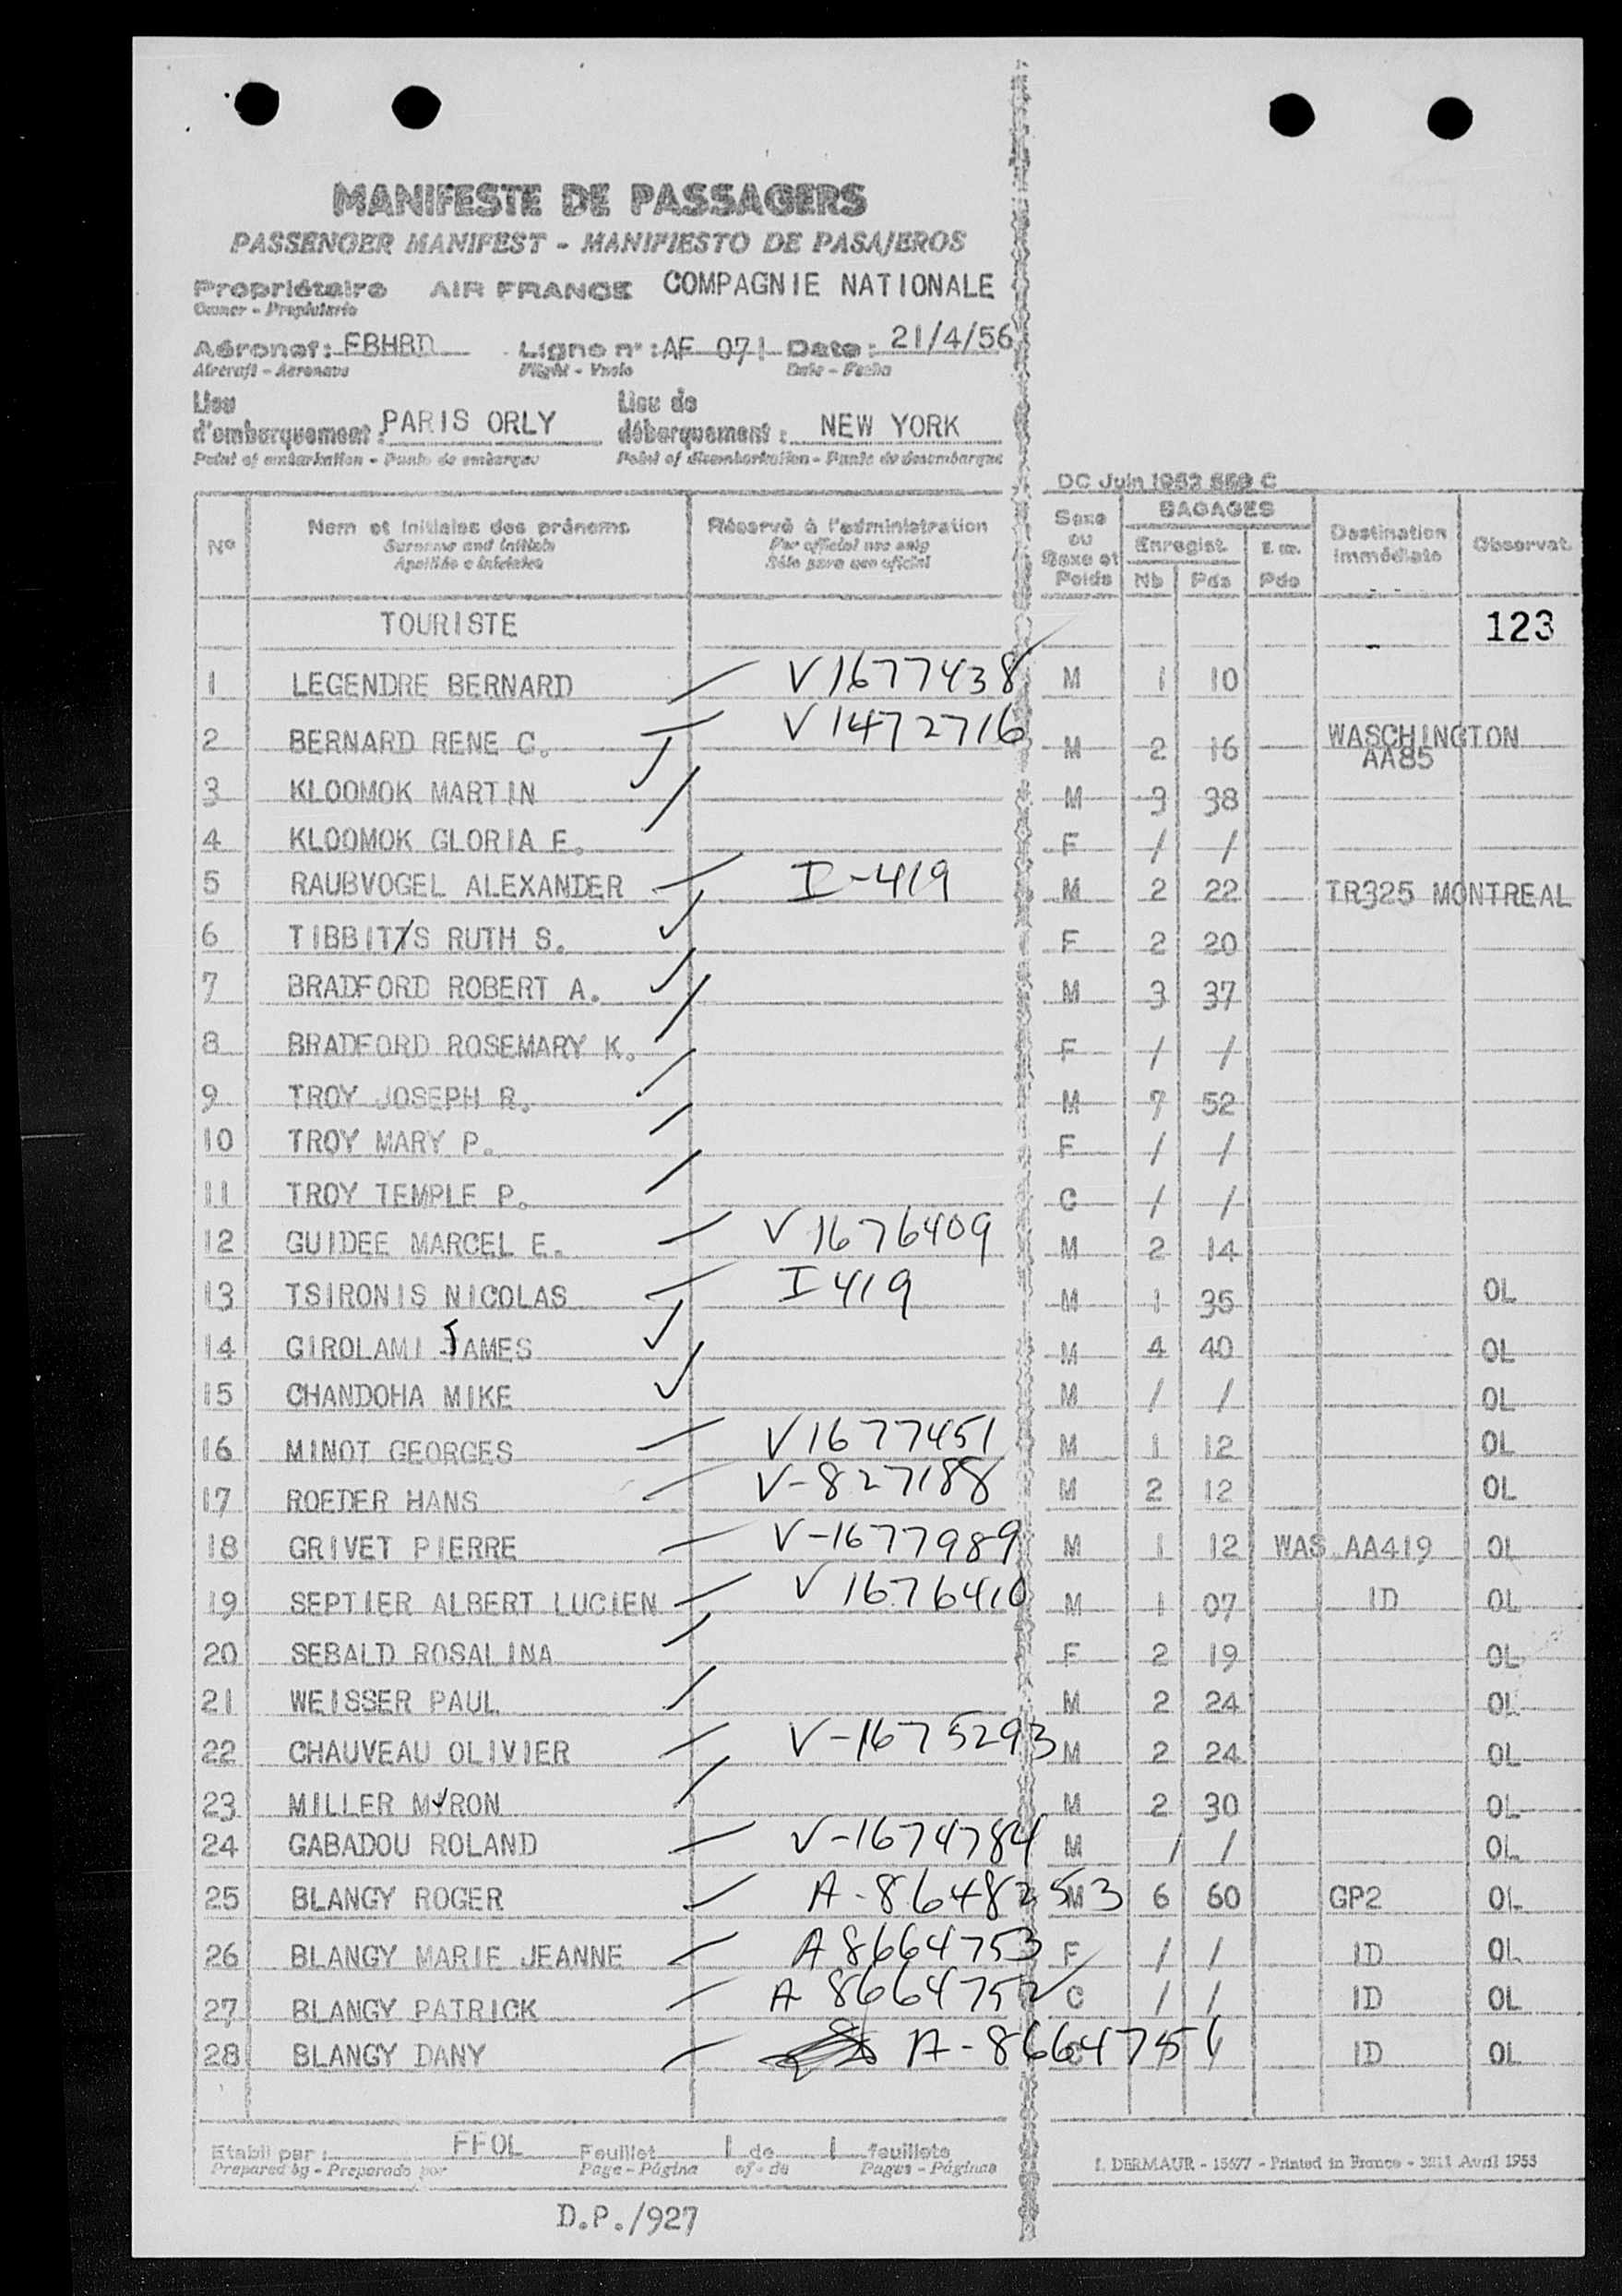 MANIFESTE DE PASSAGERS
PASSENGER MANIFEST - MANIFIESTO DE PASAJEROS
Propriétaire AIR FRANCE COMPAGNIE NATIONALE
Owner - Propietario
Aéronef: FBHBD Ligne n°: AF 071 Date: 21/4/56
Aircraft - Aeronave Flight - Vuelo Date - Fecha
Lieu d'embarquement: PARIS ORLY Lieu de débarquement: NEW YORK
Point of embarkation - Punto de embarque Point of disembarkation - Punto de desembarque
DC Juin 1952 559 C
N° Nom et initiales des prénoms Réservé à l'administration Sexe ou Sexe et Poids BAGAGES Enregist. Nb Pds Pds Destination immédiate Observat.
Surname and initials For official use only
Apellido e iniciales Sólo para uso oficial
TOURISTE 123
1 LEGENDRE BERNARD V 1677438 M 1 10
2 BERNARD RENE C. V 1472716 M 2 16 WASCHINGTON AA85
3 KLOOMOK MARTIN M 3 38
4 KLOOMOK GLORIA E. F / /
5 RAUBVOGEL ALEXANDER I-419 M 2 22 TR325 MONTREAL
6 TIBBITTS RUTH S. F 2 20
7 BRADFORD ROBERT A. M 3 37
8 BRADFORD ROSEMARY K. F / /
9 TROY JOSEPH R. M 7 52
10 TROY MARY P. F / /
11 TROY TEMPLE P. C / /
12 GUIDEE MARCEL E. V 1676409 M 2 14
13 TSIRONIS NICOLAS I 419 M 1 35 OL
14 GIROLAMI JAMES M 4 40 OL
15 CHANDOHA MIKE M / / OL
16 MINOT GEORGES V 1677451 M 1 12 OL
17 ROEDER HANS V-827188 M 2 12 OL
18 GRIVET PIERRE V-1677989 M 1 12 WAS AA419 OL
19 SEPTIER ALBERT LUCIEN V 1676410 M 1 07 ID OL
20 SEBALD ROSALINA F 2 19 OL
21 WEISSER PAUL M 2 24 OL
22 CHAUVEAU OLIVIER V-1675293 M 2 24 OL
23 MILLER MYRON M 2 30 OL
24 GABADOU ROLAND V-1674784 M / / OL
25 BLANGY ROGER A-8648253 M 6 60 GP2 OL
26 BLANGY MARIE JEANNE A 8664753 F / / ID OL
27 BLANGY PATRICK A 8664752 C / / ID OL
28 BLANGY DANY A-8664754 C / / ID OL
Etabli par: FFOL Feuillet 1 de 1 feuillets
Prepared by - Preparado por Page - Página of - de Pages - Páginas
DERMAUR - 15677 - Printed in France - 3211 Avril 1953
D.P./927